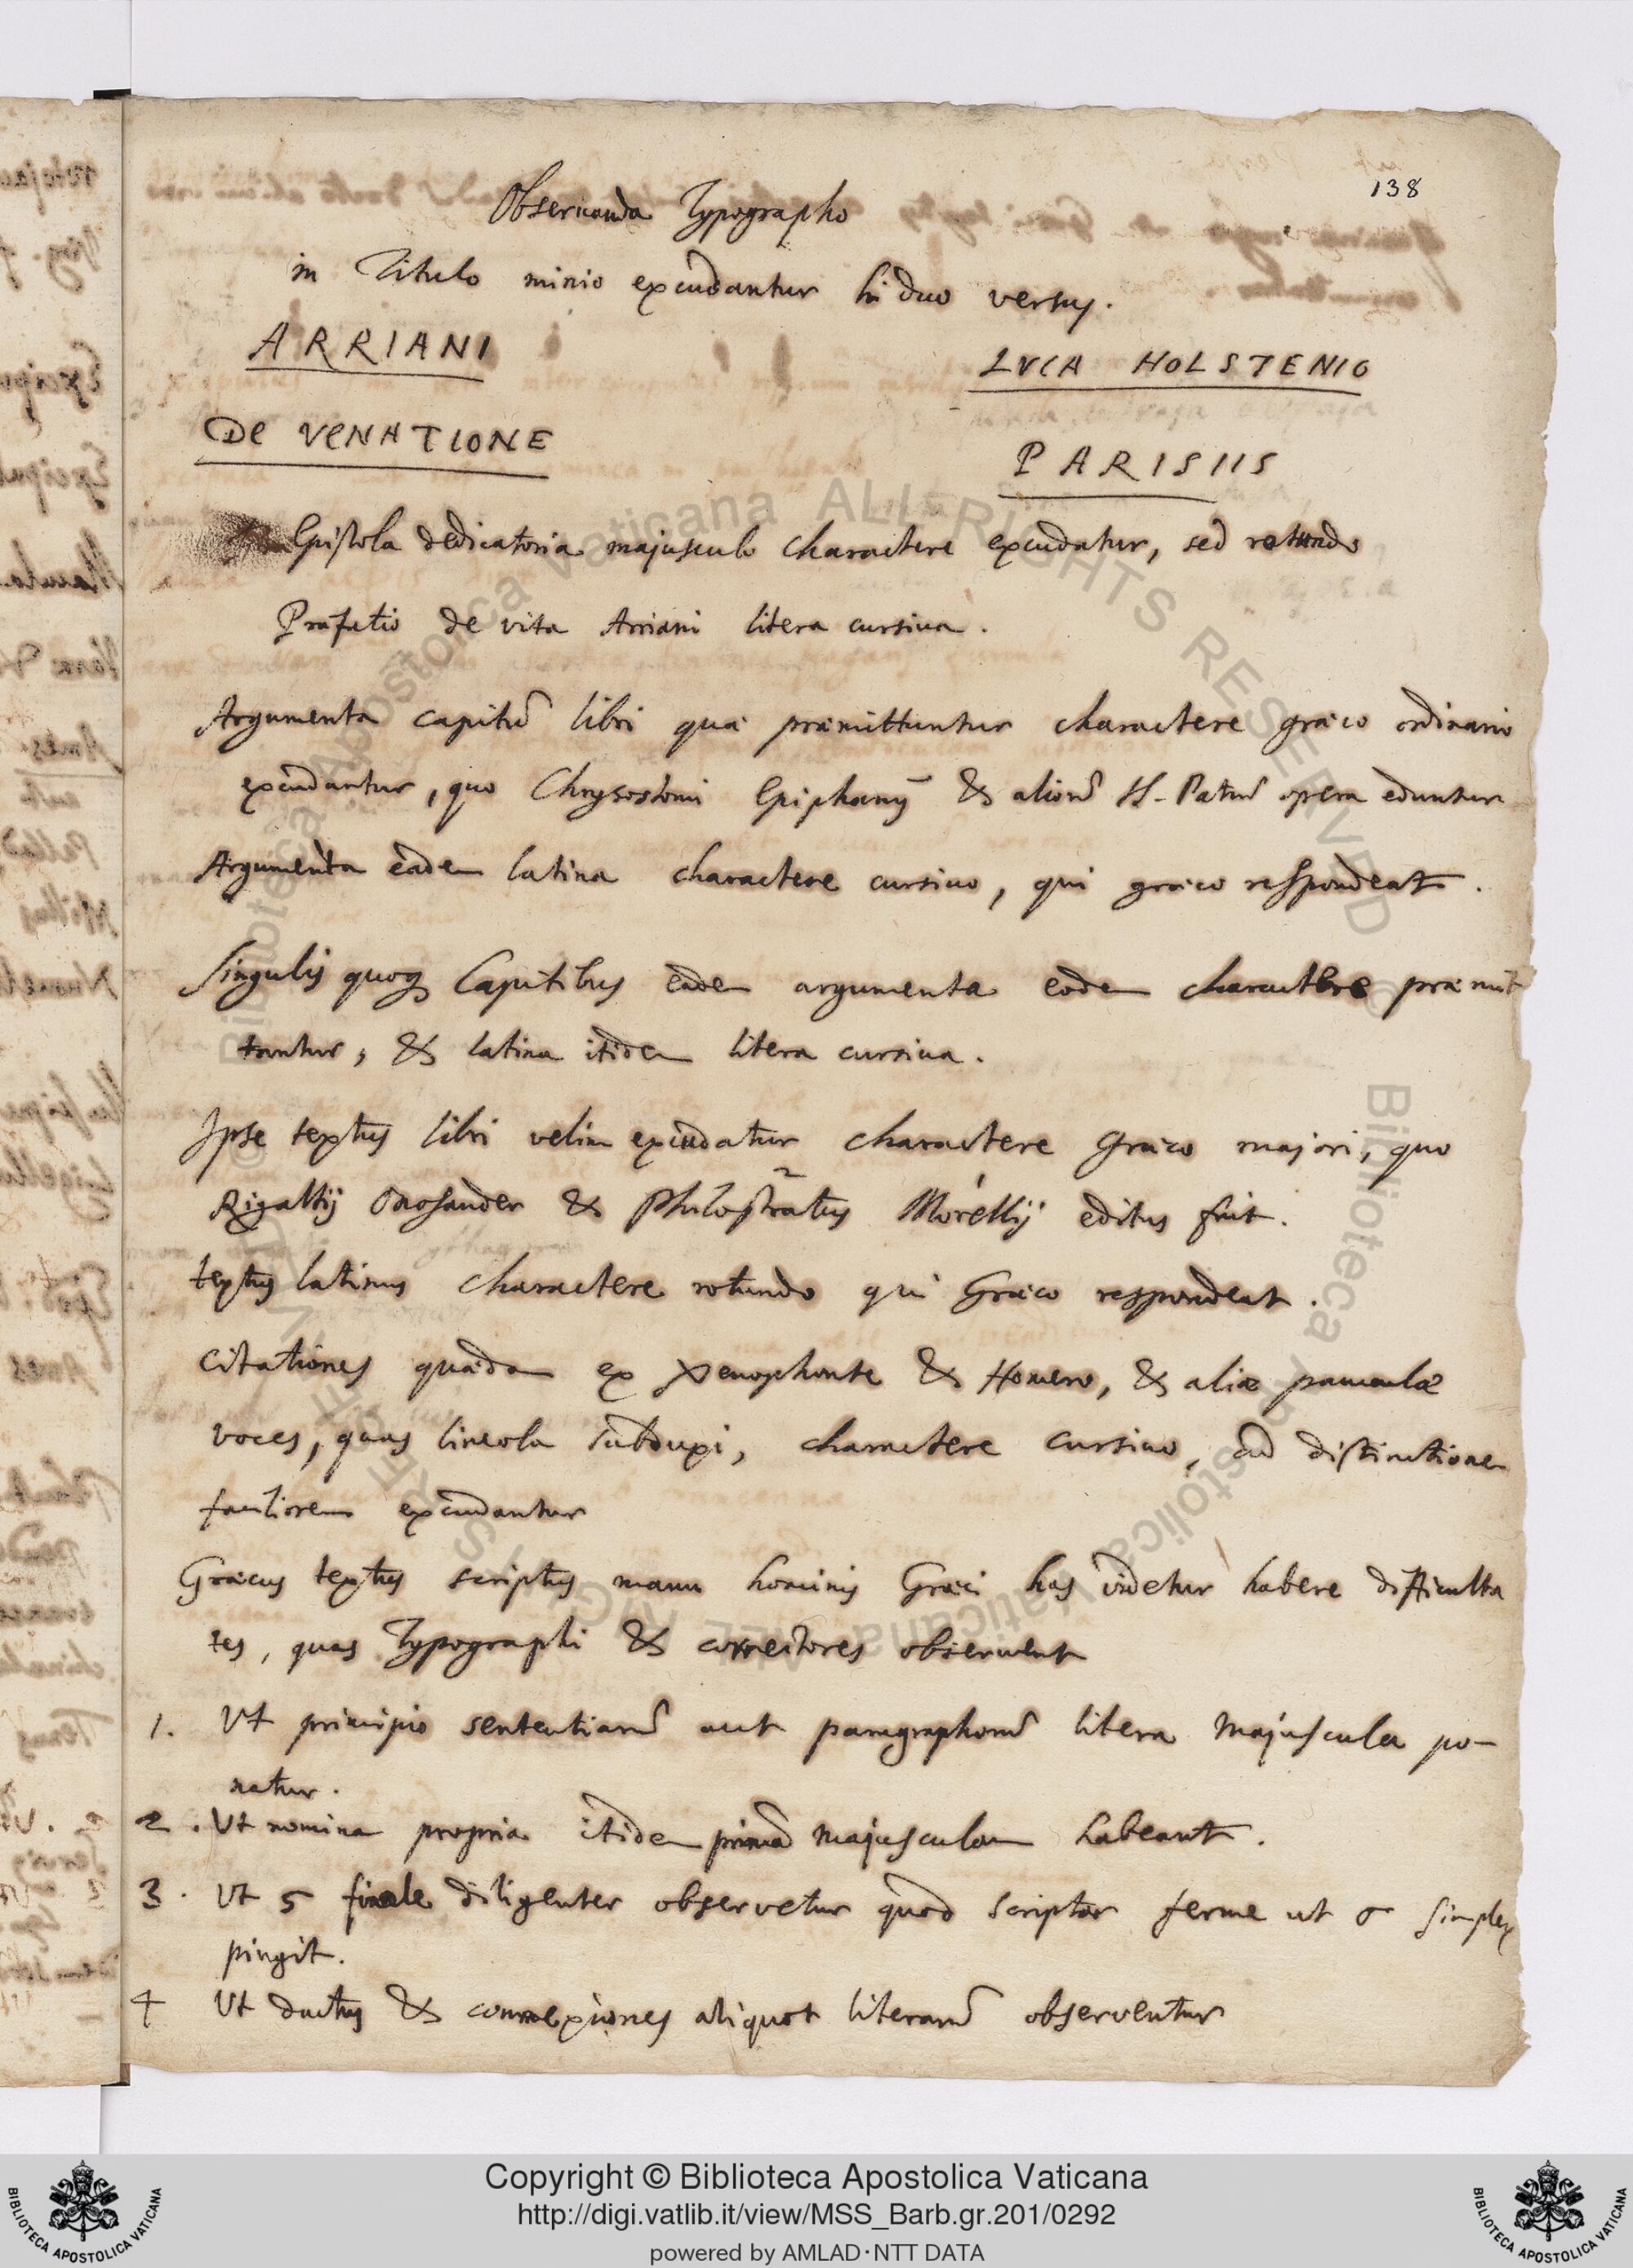 138
Obseruanda Typographo
in Titulo minio excudantur hi duo versus.
ARRIANI
LVCA HOLSTENIO
De VENATIONE
PARISIIS
Epistola dedicatoria majusculo charactere excudatur, sed rotundo
Præfatio de vita Arriani litera cursiua.
Argumenta capitū libri quæ præmittuntur charactere græco ordinario
excudantur, quo Chrysostomi Epiphanij & aliorū SS. Patrū opera eduntur
Argumenta eadem latina charactere cursiuo, qui græco respondeat.
Singulis quoq Capitibus eadem argumenta eodem charactere præmit
tantur, & latina itidem litera cursiua.
Ipse textus libri velim excudatur charactere Græco majori, quo
Rigaltij Onosander & Philostratus Morellij editus fuit.
textus latinus charactere rotundo qui Græco respondeat.
Citationes quædam ex Xenophonte & Homero, & aliæ pauculæ
voces, quas lineola subduxi, charactere cursiuo, ad distinctionem
faciliorem excudantur
Græcus textus scriptus manu hominis Græci has videtur habere difficulta
tes, quas Typographi & correctores obseruent
1. Vt principio sententiarū aut paragraphorū litera majuscula po-
natur.
2. Vt nomina propria itidem primā majusculam habeant.
3. Vt ς finale diligenter observetur quod scriptor ferme ut σ simplex
pingit.
4 Vt ductus & connexiones aliquot literarū observentur
Copyright © Biblioteca Apostolica Vaticana
http://digi.vatlib.it/view/MSS_Barb.gr.201/0292
powered by AMLAD·NTT DATA
BIBLIOTECA APOSTOLICA VATICANA
BIBLIOTECA APOSTOLICA VATICANA